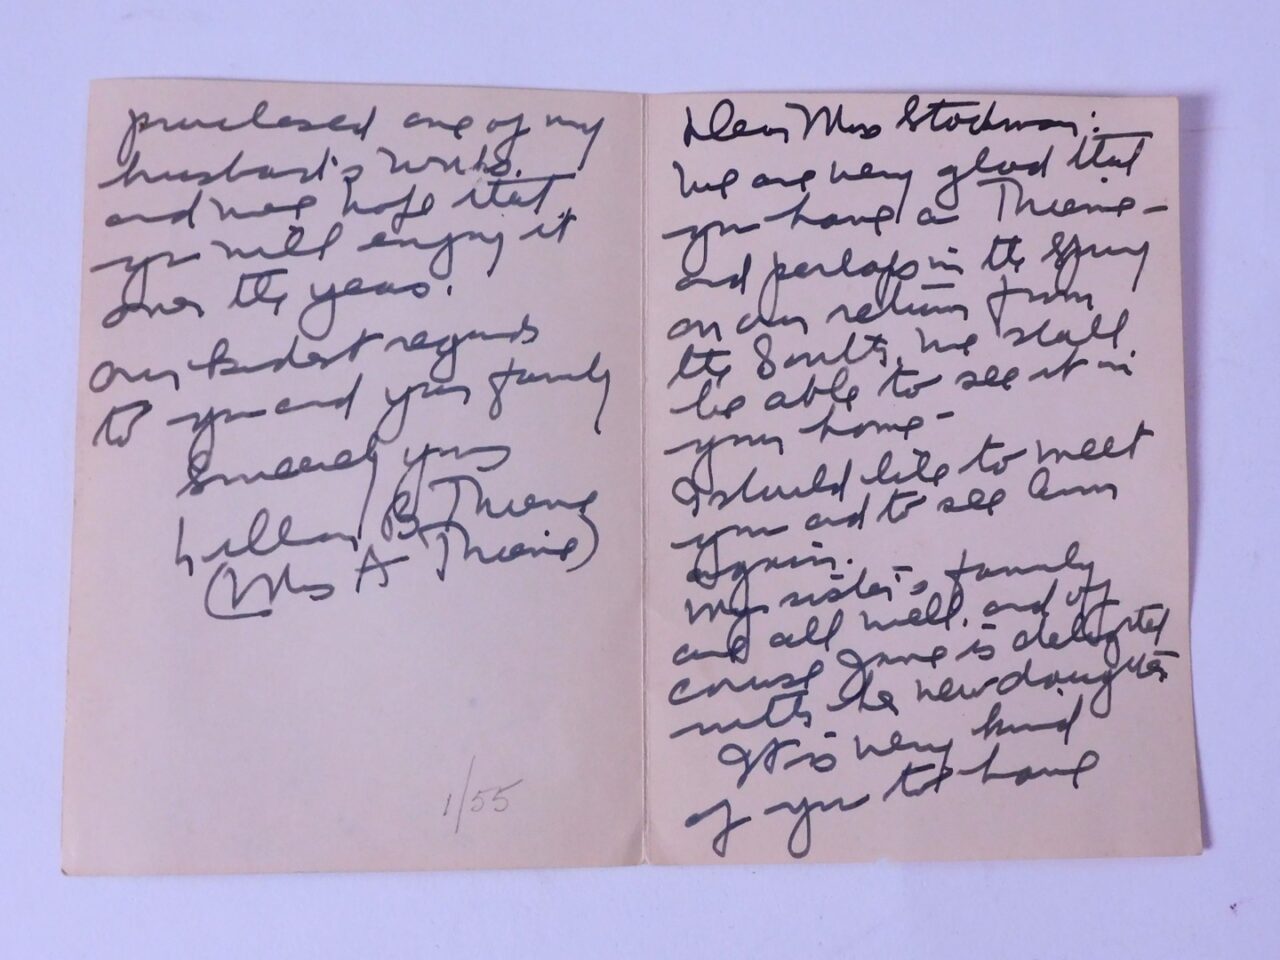 Dear Mrs Stockman:
We are very glad that
you have a Thieme -
and perhaps in the Spring
on our return from
the South, we shall
be able to see it in
your home -
I should like to meet
you and to see Ann
again.
My sister's family
are all well, and of
course Jane is delighted
with the new daughter
It is very kind
of you to have
purchased one of my
husband's works.
and we hope that
you will enjoy it
over the years.
Our kindest regards
to you and your family
Sincerely yours
Lillian B Thieme
(Mrs A Thieme)
1/55